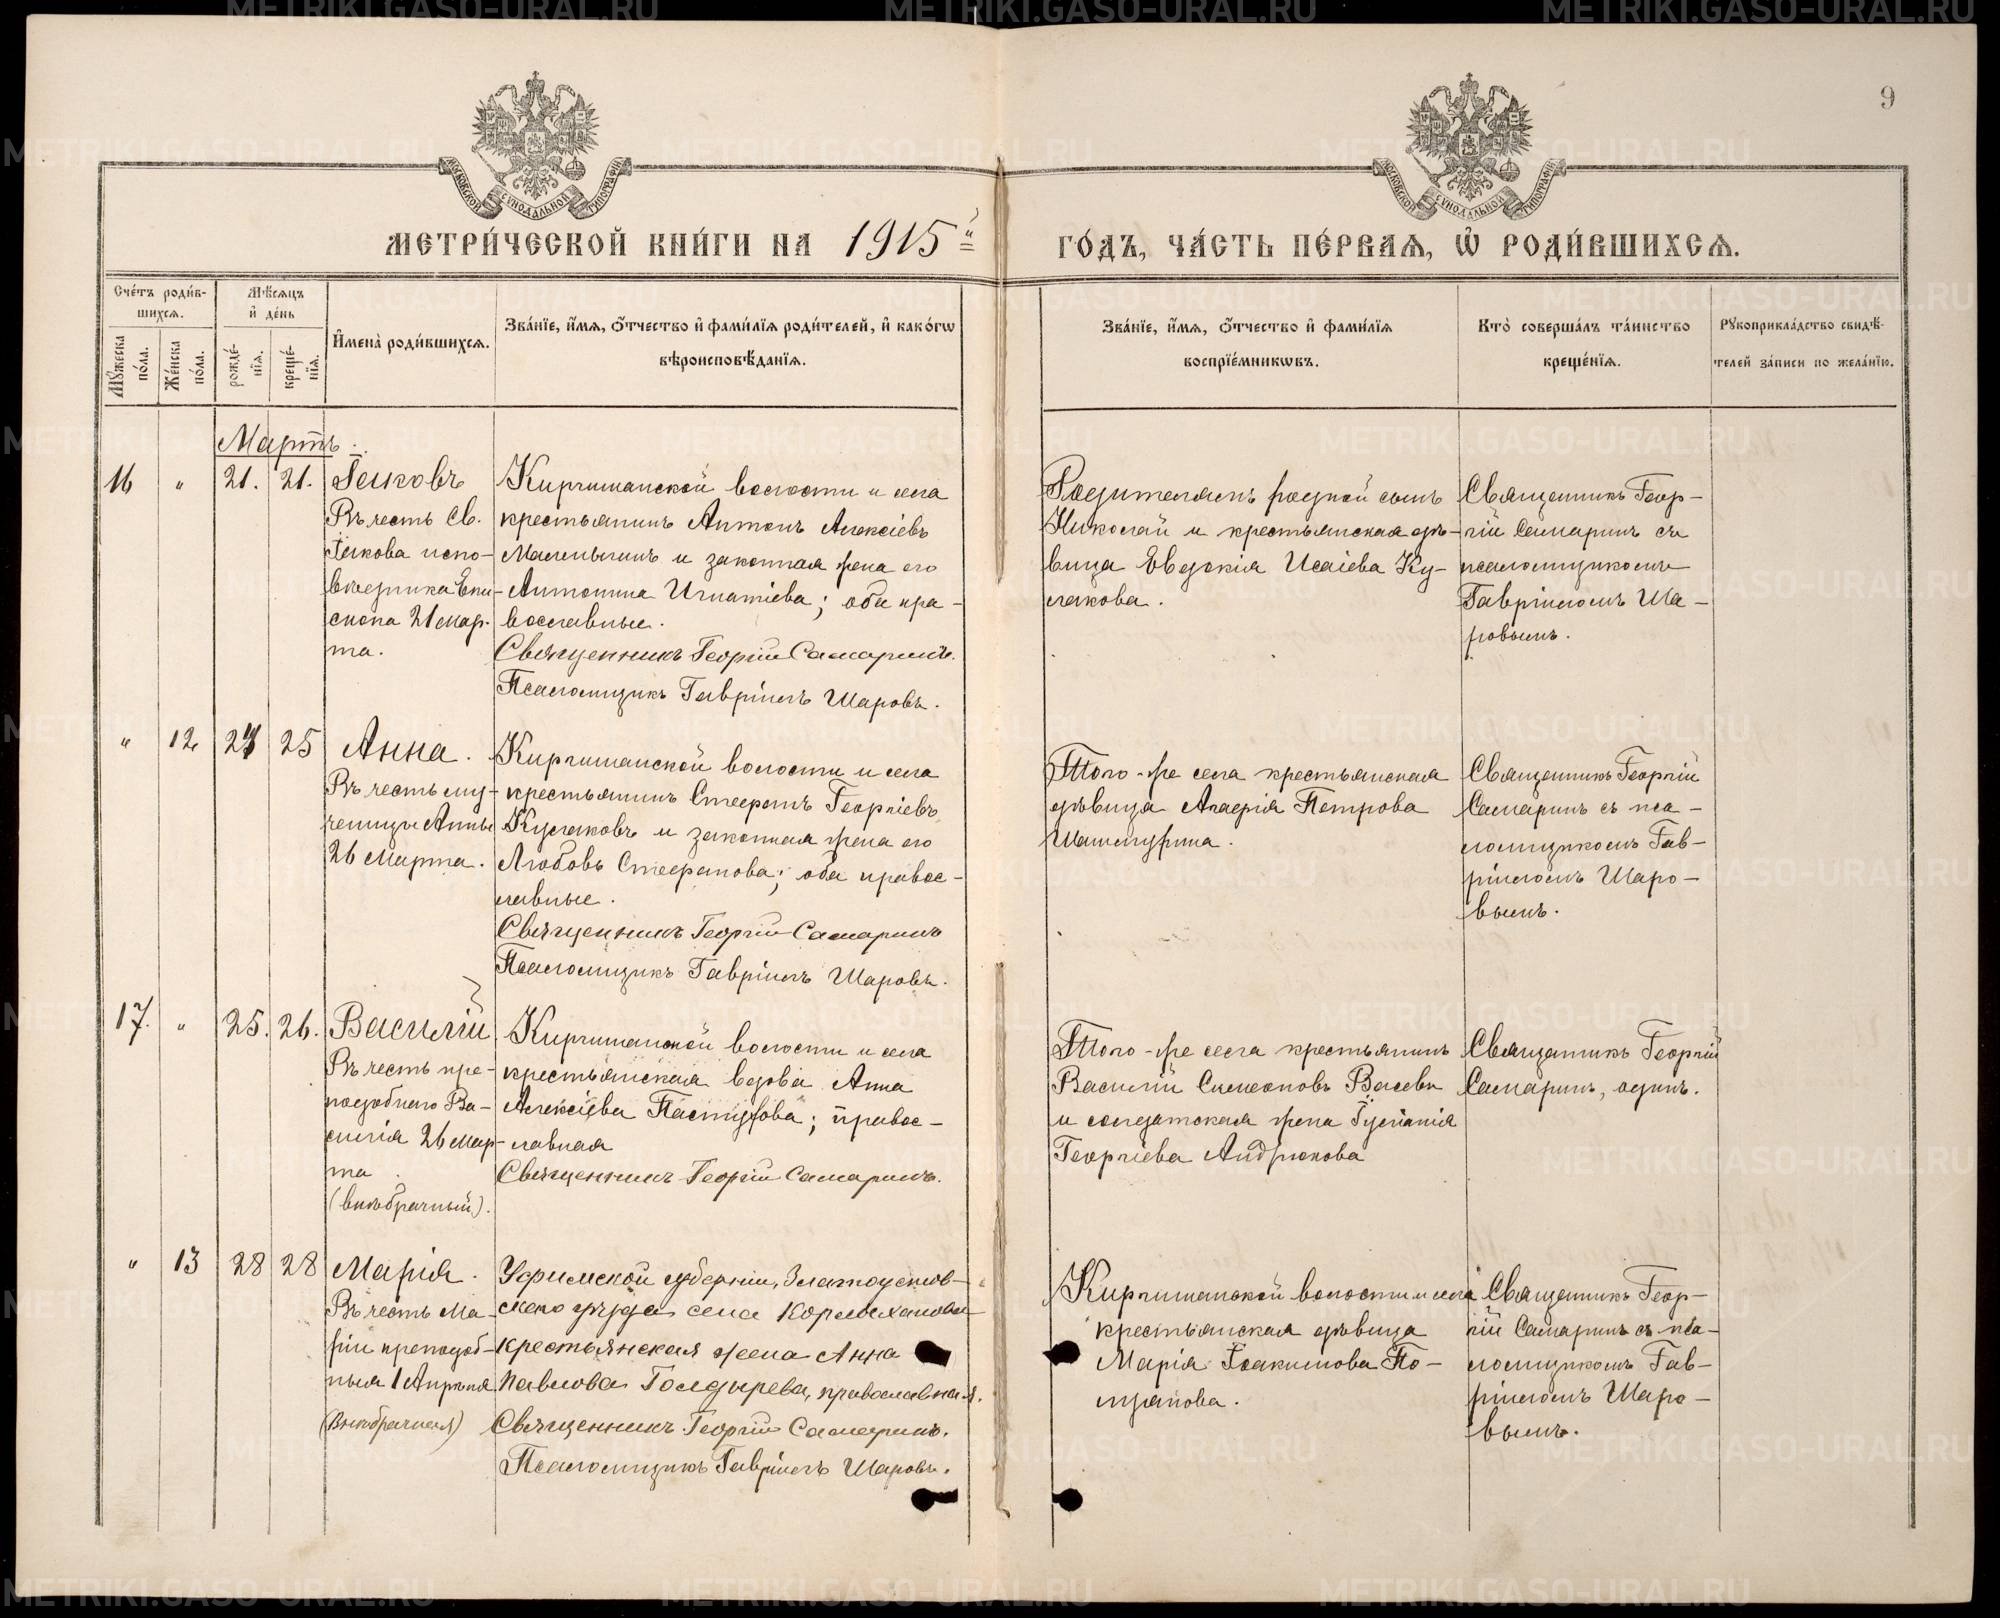 9
МОСКОВСКОЙ СУНОДАЛЬНОЙ ТИПОГРАФІИ
МОСКОВСКОЙ СУНОДАЛЬНОЙ ТИПОГРАФІИ
МЕТРИ́ЧЕСКОЙ КНИ́ГИ НА 1915й
ГО́ДЪ, ЧА́СТЬ ПЕ́РВАѦ, Ѡ҆ РОДИ́ВШИХСѦ.
Сче́тъ роди́в-
шихсѧ.
Мꙋ́жеска по́ла.
Же́нска по́ла.
Мѣ́сѧцъ
и҆ де́нь
рожде́-
нїѧ.
креще́-
нїѧ.
И҆мена̀ роди́вшихсѧ.
Зва́нїе, и҆́мѧ, ѻ҆́тчество и҆ фами́лїѧ роди́телей, и҆ како́гѡ
вѣроисповѣ́данїѧ.
Зва́нїе, и҆́мѧ, ѻ҆́тчество и҆ фами́лїѧ
воспрїе́мникѡвъ.
Кто̀ соверша́лъ та́инство
креще́нїѧ.
Рꙋкоприкла́дство свидѣ́-
телей за́писи по жела́нїю.
Мартъ.
16 " 21. 21.
Іаковъ
Въ честь Св.
Іакова испо-
вѣдника Епи-
скопа 21 мар-
та.
Киргишанской волости и села
крестьянинъ Антонъ Алексіевъ
Малыгинъ и законная жена его
Антонина Игнатіева; оба пра-
вославные.
Священникъ Георгій Самаринъ.
Псаломщикъ Гавріилъ Шаровъ.
Родителямъ родной сынъ
Николай и крестьянская дѣ-
вица Евдокія Исаіева Ку-
лакова.
Священникъ Геор-
гій Самаринъ съ
псаломщикомъ
Гавріиломъ Ша-
ровымъ.
" 12 24 25
Анна.
Въ честь му-
ченицы Анны
26 Марта.
Киргишанской волости и села
крестьянинъ Стефанъ Георгіевъ
Кулаковъ и законная жена его
Любовь Стефанова; оба правос-
лавные.
Священникъ Георгій Самаринъ
Псаломщикъ Гавріилъ Шаровъ.
Того-же села крестьянская
дѣвица Агафія Петрова
Шашмурина.
Священникъ Георгій
Самаринъ съ пса-
ломщикомъ Гав-
ріиломъ Шаро-
вымъ.
17. " 25. 26.
Василій
Въ честь пре-
подобнаго Ва-
силія 26 мар-
та
(внѣбрачный).
Киргишанской волости и села
крестьянская вдова Анна
Алексіева Пастухова; правос-
лавная
Священникъ Георгій Самаринъ.
Того-же села крестьянинъ
Василій Симеоновъ Валевъ
и солдатская жена Іуліанія
Георгіева Андрюкова
Священникъ Георгій
Самаринъ, одинъ.
" 13 28 28
Марія.
Въ честь Ма-
ріи преподоб-
ныя 1 Апрѣля
(Внѣбрачная)
Уфимской губерніи, Златоустов-
скаго уѣзда села
крестьянская жена Анна
Павлова Голдырева, православная.
Священникъ Георгій Самаринъ.
Псаломщикъ Гавріилъ Шаровъ.
Киргишанской волости и села
крестьянская дѣвица
Марія Іоакимова По-
Священникъ Геор-
гій Самаринъ съ пса-
ломщикомъ Гав-
ріиломъ Шаро-
вымъ.
METRIKI.GASO-URAL.RU